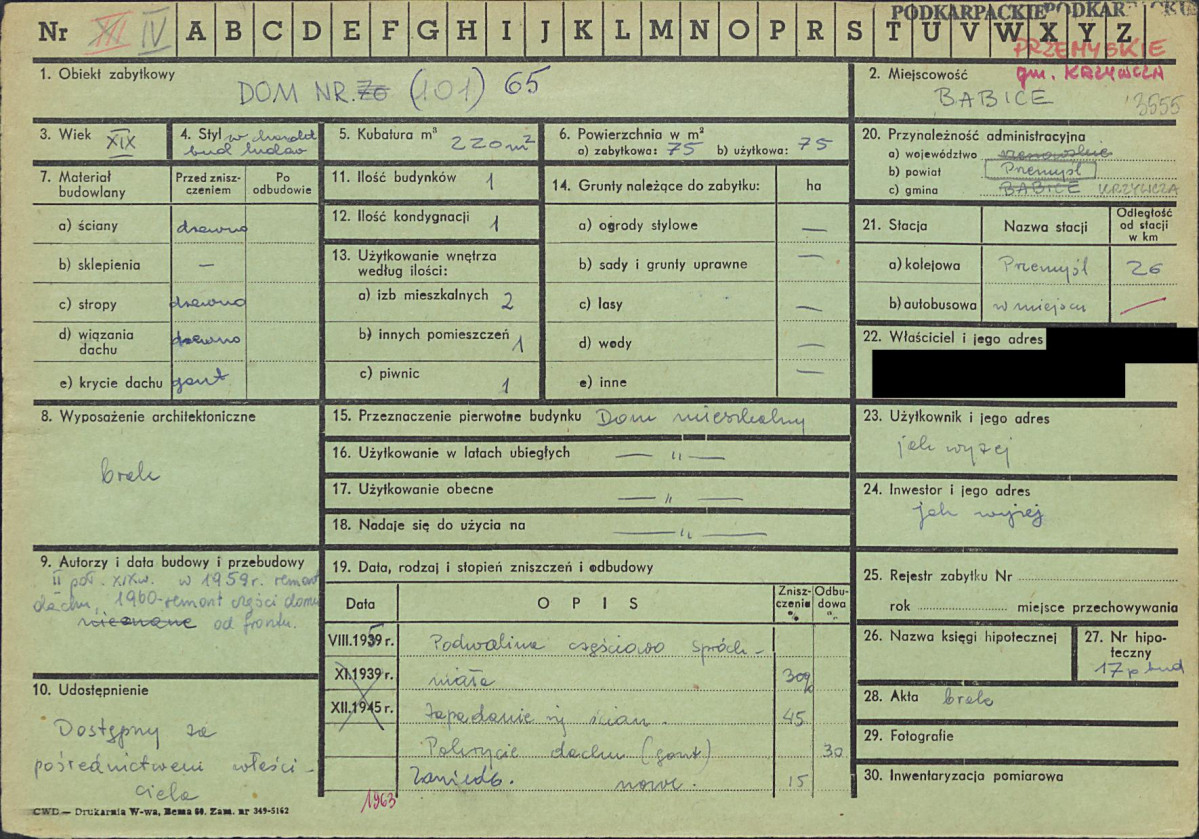 PODKARPACKIE PODKAR
Nr XII IV A B C D E F G H I J K L M N O P R S T U V W X Y Z
PRZEMYSKIE
gm. KRZYWCZA
1. Obiekt zabytkowy
DOM NR. 76 (101) 65
2. Miejscowość
BABICE
3555
3. Wiek XIX
4. Styl w charakt
bud ludow
5. Kubatura m³ 220 m²
6. Powierzchnia w m²
a) zabytkowa: 75 b) użytkowa: 75
20. Przynależność administracyjna
a) województwo rzeszowskie
b) powiat Przemyśl
c) gmina BABICE KRZYWCZA
7. Materiał budowlany
Przed znisz-
czeniem
Po
odbudowie
a) ściany drewno
b) sklepienia —
c) stropy drewno
d) wiązania
dachu drewno
e) krycie dachu gont
11. Ilość budynków 1
12. Ilość kondygnacji 1
13. Użytkowanie wnętrza
według ilości:
a) izb mieszkalnych 2
b) innych pomieszczeń 1
c) piwnic 1
14. Grunty należące do zabytku: ha
a) ogrody stylowe —
b) sady i grunty uprawne —
c) lasy —
d) wody —
e) inne —
21. Stacja
Nazwa stacji
Odległość
od stacji
w km
a) kolejowa Przemyśl 26
b) autobusowa w miejscu —
22. Właściciel i jego adres
8. Wyposażenie architektoniczne
brak
15. Przeznaczenie pierwotne budynku Dom mieszkalny
16. Użytkowanie w latach ubiegłych — „ —
17. Użytkowanie obecne — „ —
18. Nadaje się do użycia na — „ —
23. Użytkownik i jego adres
jak wyżej
24. Inwestor i jego adres
jak wyżej
9. Autorzy i data budowy i przebudowy
II poł. XIX w. w 1959 r. remont
dachu, 1960 - remont części domu
nieznane od frontu.
19. Data, rodzaj i stopień zniszczeń i odbudowy
Data
O P I S
Znisz-
czenia
%
Odbu-
dowa
%
VIII.1939 r. Podwalina częściowo spróch-
XI.1939 r. niała 30%
XII.1945 r. Zapadanie się ścian. 45
Pokrycie dachu (gont) 30
Zaniedb. nowe. 15
1963
10. Udostępnienie
Dostępny za
pośrednictwem właści-
ciela
25. Rejestr zabytku Nr
rok miejsce przechowywania
26. Nazwa księgi hipotecznej
27. Nr hipo-
teczny
17 p bud
28. Akta brak
29. Fotografie
30. Inwentaryzacja pomiarowa
CWD — Drukarnia W-wa, Bema 60. Zam. nr 349-5162